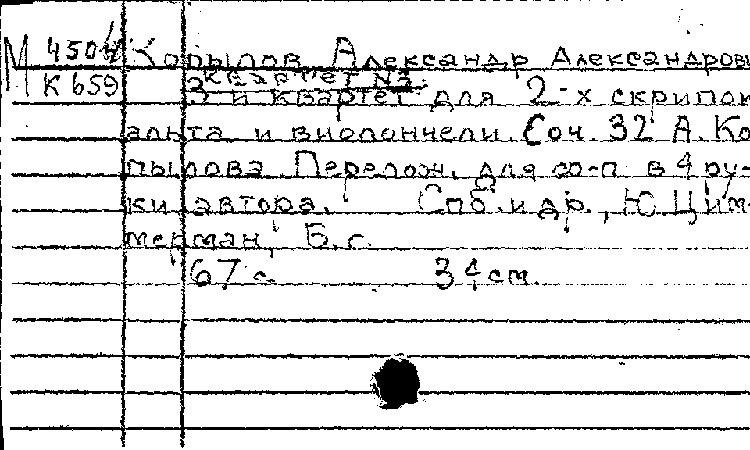 М 4504 Копылов Александр Александрови
К 659 Квартет №3.
3-й квартет для 2-х скрипок
альта и виолончели. Соч. 32 А. Ко-
пылова. Перелож. для ф-п в 4 ру-
ки автора. Спб. и др., Ю. Цим-
мерман, Б. г.
67 с. 34 см.